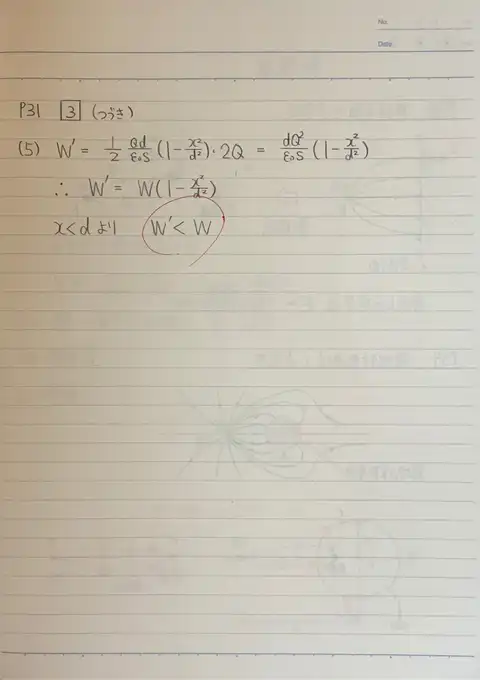 No.
Date
P31 3 (つづき)
(5) W' = 1/2 Qd/ε₀S (1-x²/d²)・2Q = dQ²/ε₀S (1-x²/d²)
∴ W' = W(1-x²/d²)
x<dより W'< W